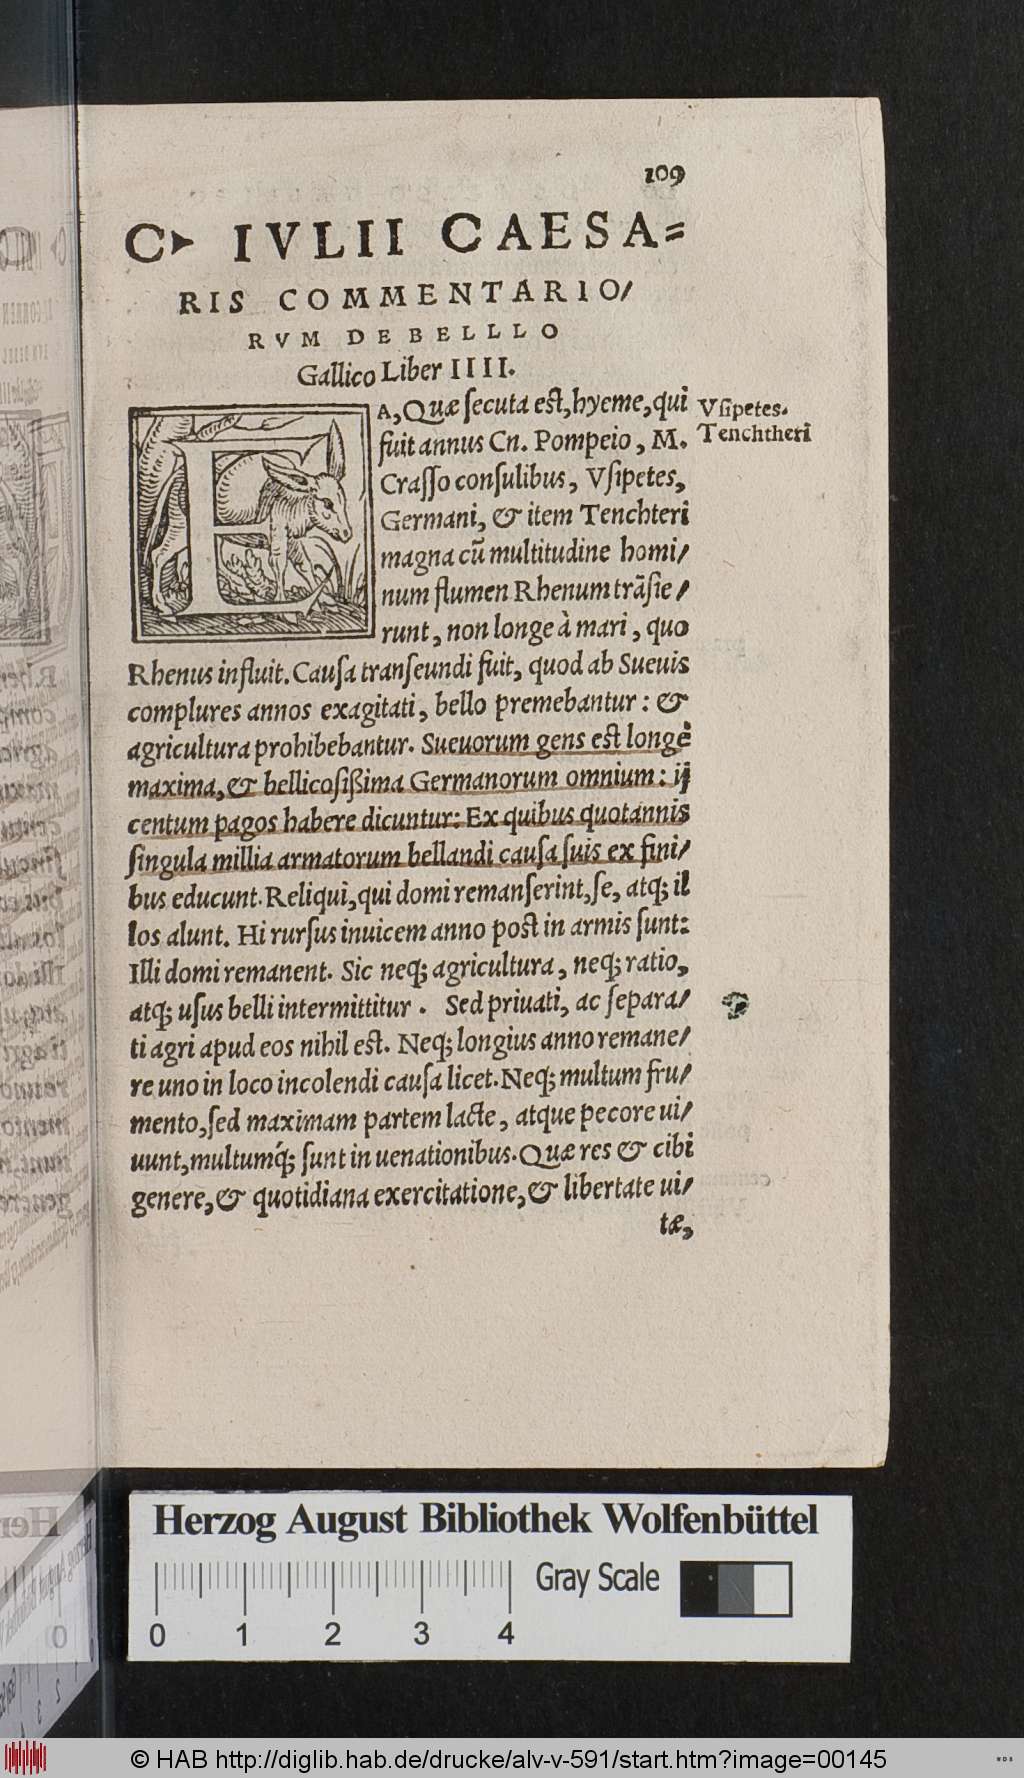 109
C‣ IVLII CAESA=
RIS COMMENTARIO/
RVM DE BELLLO
Gallico Liber IIII.
EA, Quæ ſecuta eſt, hyeme, qui
fuit annus Cn. Pompeio, M.
Craſſo conſulibus, Vſipetes,
Germani, & item Tenchteri
magna cũ multitudine homi/
num flumen Rhenum trãſie/
runt, non longe à mari, quo
Rhenus influit. Cauſa tranſeundi fuit, quod ab Sueuis
complures annos exagitati, bello premebantur: &
agricultura prohibebantur. Sueuorum gens eſt longè
maxima, & bellicoſißima Germanorum omnium: ij
centum pagos habere dicuntur: Ex quibus quotannis
ſingula millia armatorum bellandi cauſa ſuis ex fini/
bus educunt. Reliqui, qui domi remanſerint, ſe, atq; il
los alunt. Hi rurſus inuicem anno poſt in armis ſunt:
Illi domi remanent. Sic neq; agricultura, neq; ratio,
atq; uſus belli intermittitur. Sed priuati, ac ſepara/
ti agri apud eos nihil eſt. Neq; longius anno remane/
re uno in loco incolendi cauſa licet. Neq; multum fru/
mento, ſed maximam partem lacte, atque pecore ui/
uunt, multumq́; ſunt in uenationibus. Quæ res & cibi
genere, & quotidiana exercitatione, & libertate ui/
tæ,
Vſipetes.
Tenchtheri
Herzog August Bibliothek Wolfenbüttel
Gray Scale
0 1 2 3 4
© HAB http://diglib.hab.de/drucke/alv-v-591/start.htm?image=00145